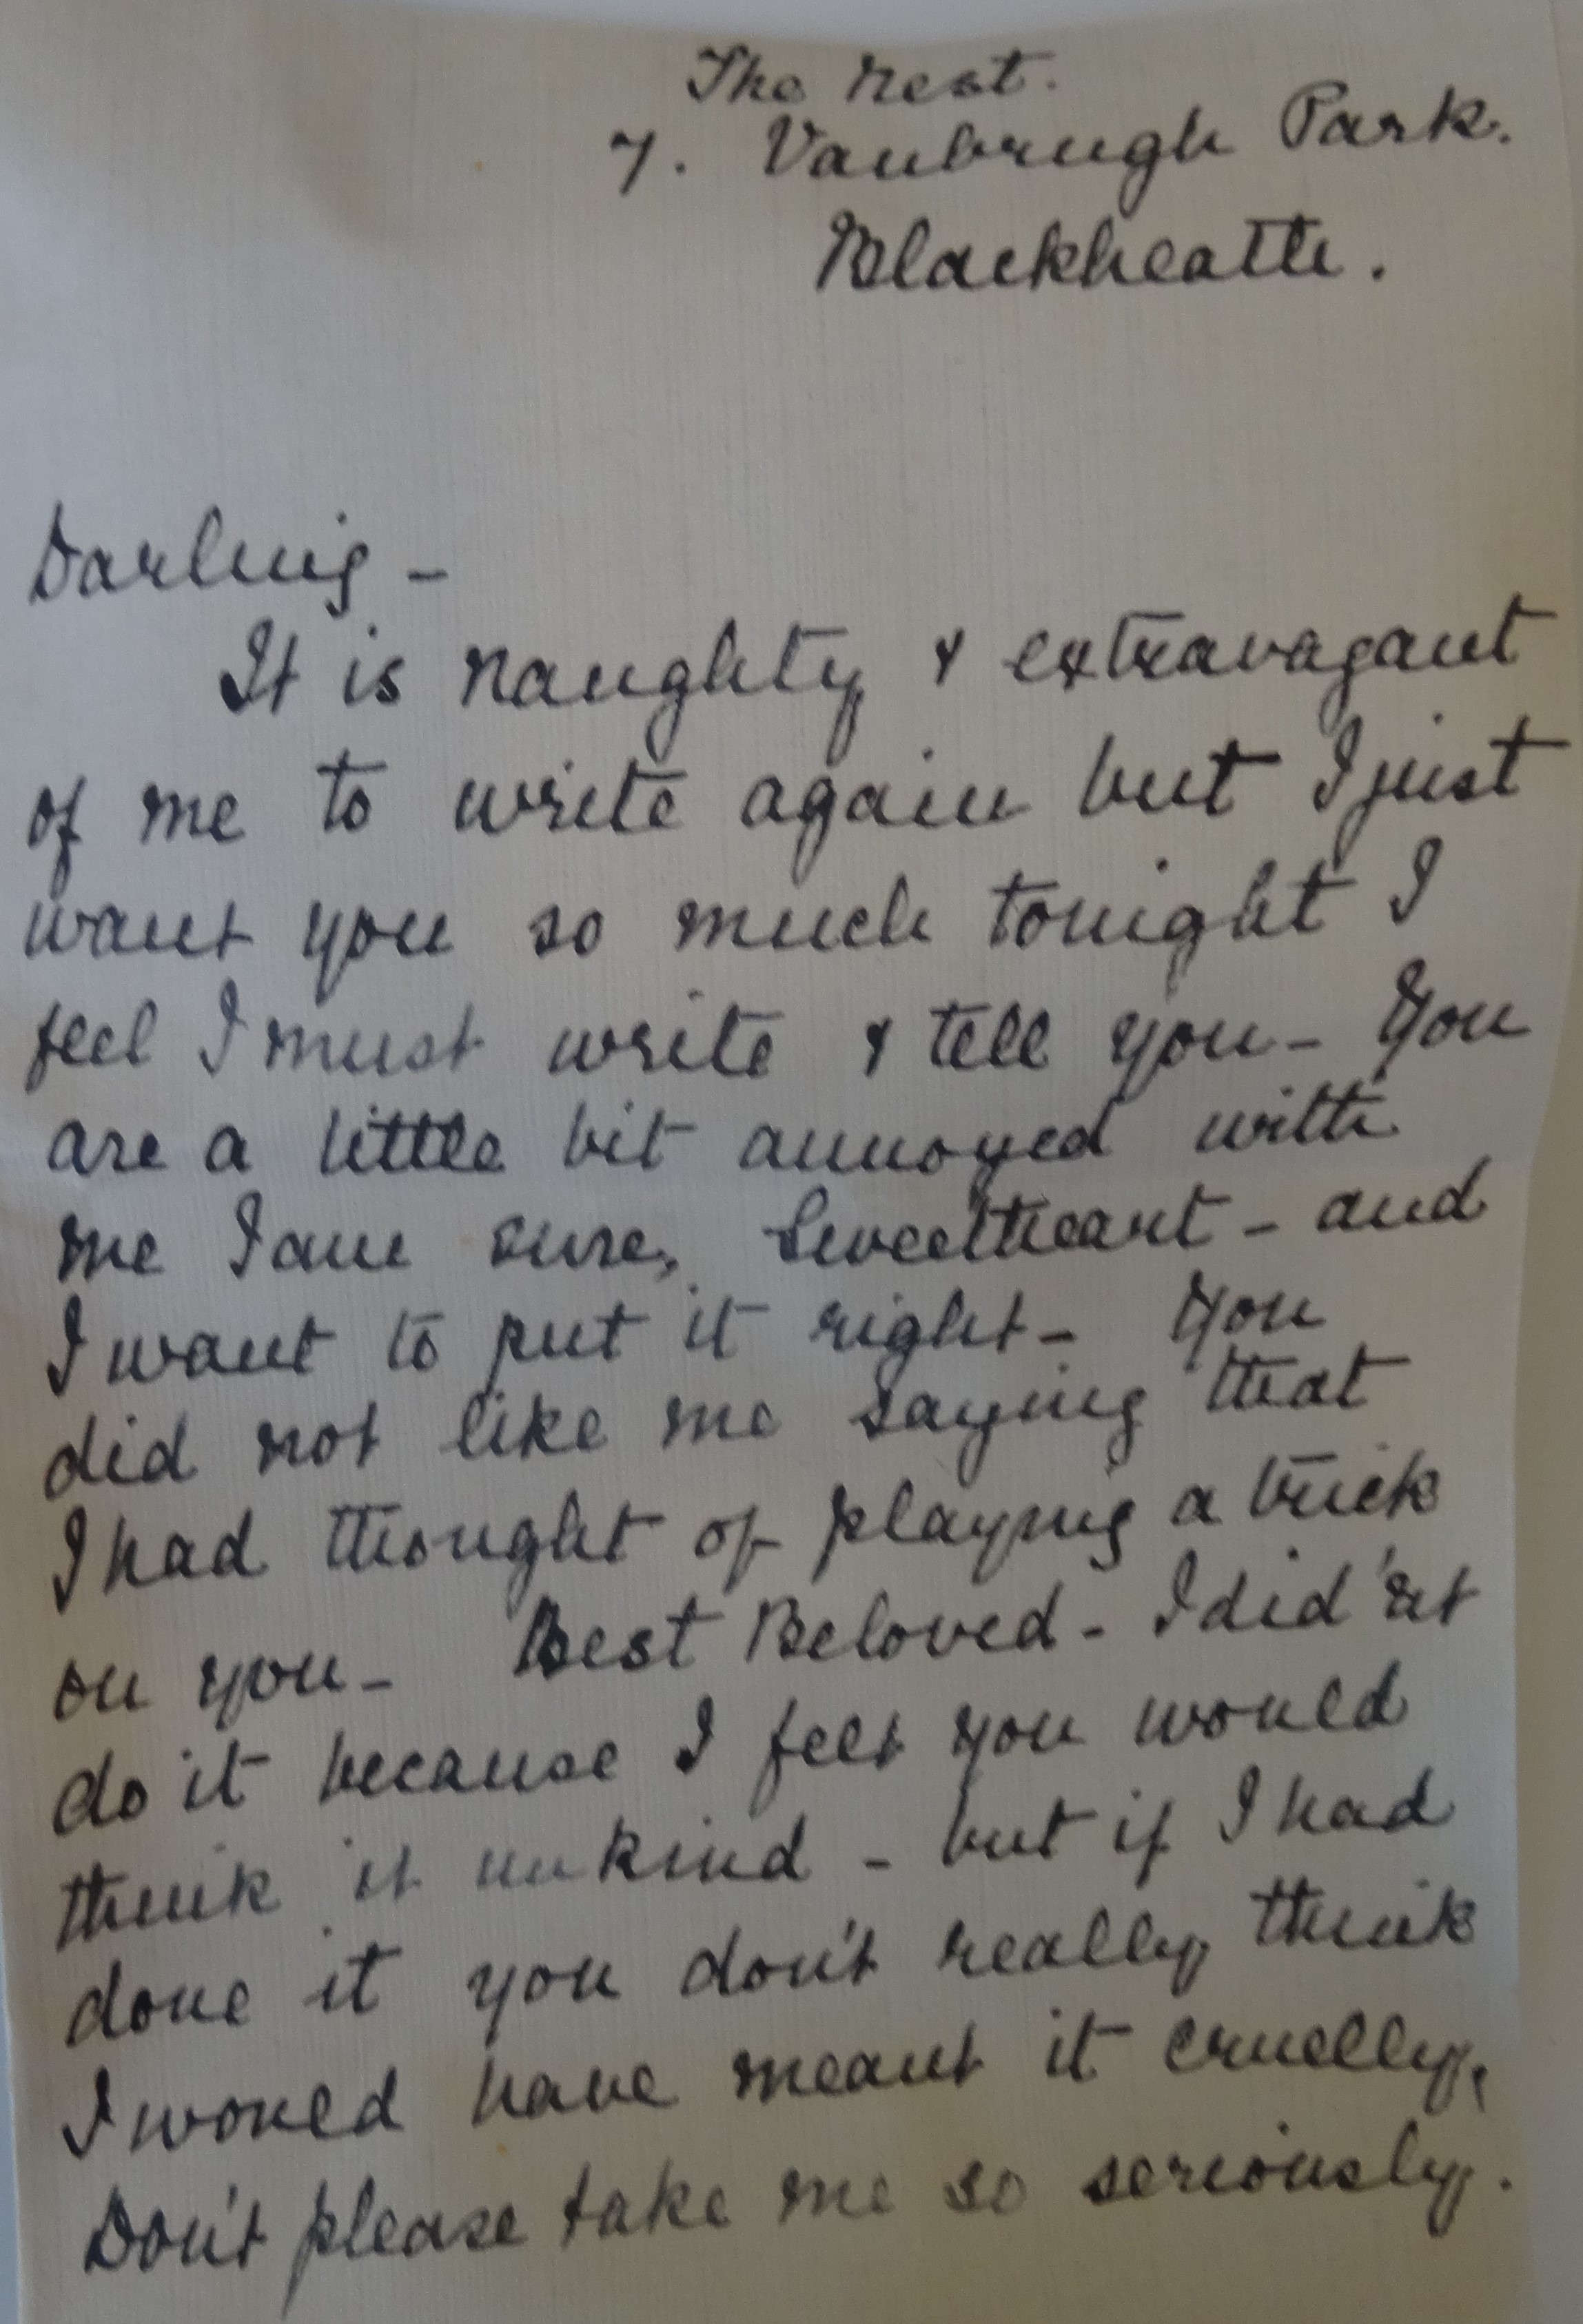 The Nest.
7. Vanbrugh Park.
Blackheath.
Darling -
It is naughty & extravagant
of me to write again but I just
want you so much tonight I
feel I must write & tell you - You
are a little bit annoyed with
me I am sure, Sweetheart - and
I want to put it right - You
did not like me saying that
I had thought of playing a trick
on you - Best Beloved - I did'nt
do it because I felt you would
think it unkind - but if I had
done it you don't really think
I would have meant it cruelly,
Don't please take me so seriously.